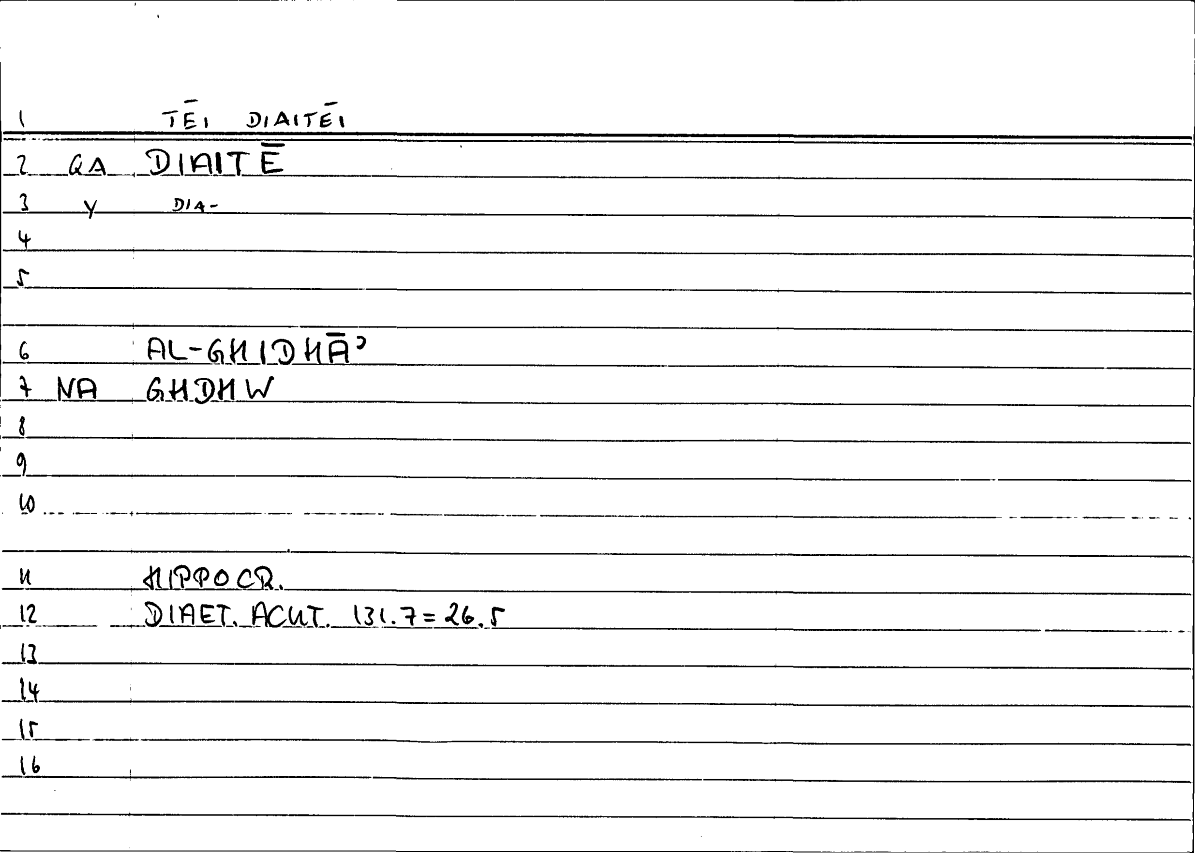 1 TĒI DIAITĒI
2 GA DIAITĒ
3 Y DIA-
4
5
6 AL-GHIDHĀʾ
7 NA GHDHW
8
9
10
11 HIPPOCR.
12 DIAET. ACUT. 131.7=26.5
13
14
15
16